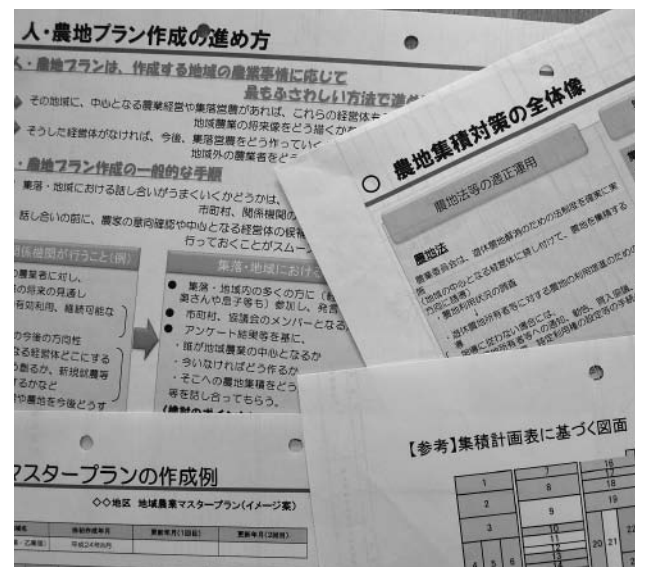 人・農地プラン作成の進め方
人・農地プランは、作成する地域の農業事情に応じて
最もふさわしい方法で進め
その地域に、中心となる農業経営や集落営農があれば、これらの経営体を
地域農業の将来像をどう描くか
そうした経営体がなければ、今後、集落営農をどう作っていく
地域外の農業者をど
・農地プラン作成の一般的な手順
集落・地域における話し合いがうまくいくかどうかは、
市町村、関係機関の
話し合いの前に、農家の意向確認や中心となる経営体の候補
行っておくことがスムー
関係機関が行うこと(例)
の農業者に対し、
の将来の見通し
有効利用、継続可能な
の今後の方向性
なる経営体どこにする
う創るか、新規就農等
するかなど
や農地を今後どうす
集落・地域におけ
● 集落・地域内の多くの方に
奥さんや息子等も)参加し、発言
● 市町村、協議会のメンバーとなる
● アンケート結果等を基に、
・誰が地域農業の中心となるか
・今いなければどう作るか
・そこへの農地集積をどう
等を話し合ってもらう。
○ 農地集積対策の全体像
農地法等の適正運用
農地法
農業委員会は、遊休農地解消のための法制度を確実に実
施
(地域の中心となる経営体に貸し付けて、農地を集積する
方向に誘導)
・農地利用状況の調査
・遊休農地所有者等に対する農地の利用増進のための
・指導に従わない場合には、
【参考】集積計画表に基づく図面
1
2
3
4
5
6
7
8
9
10
11
12
13
14
16
17
18
19
20
21
22
マスタープランの作成例
◇◇地区 地域農業マスタープラン(イメージ案)
当初作成年月
更新年月(1回目)
更新年月(2回目)
平成24年6月